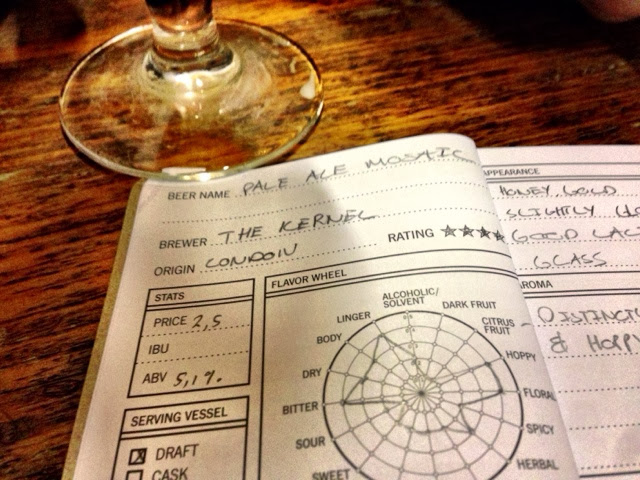 BEER NAME PALE ALE MOSAIC
BREWER THE KERNEL
RATING
ORIGIN LONDON
STATS
PRICE 2,5
IBU
ABV 5,1%
SERVING VESSEL
DRAFT
CASK
FLAVOR WHEEL
ALCOHOLIC/
SOLVENT
DARK FRUIT
CITRUS
FRUIT
HOPPY
FLORAL
SPICY
HERBAL
SWEET
SOUR
BITTER
DRY
BODY
LINGER
APPEARANCE
HONEY GOLD
SLIGHTLY
GOOD
GLASS
AROMA
DISTINCT
& HOPPY